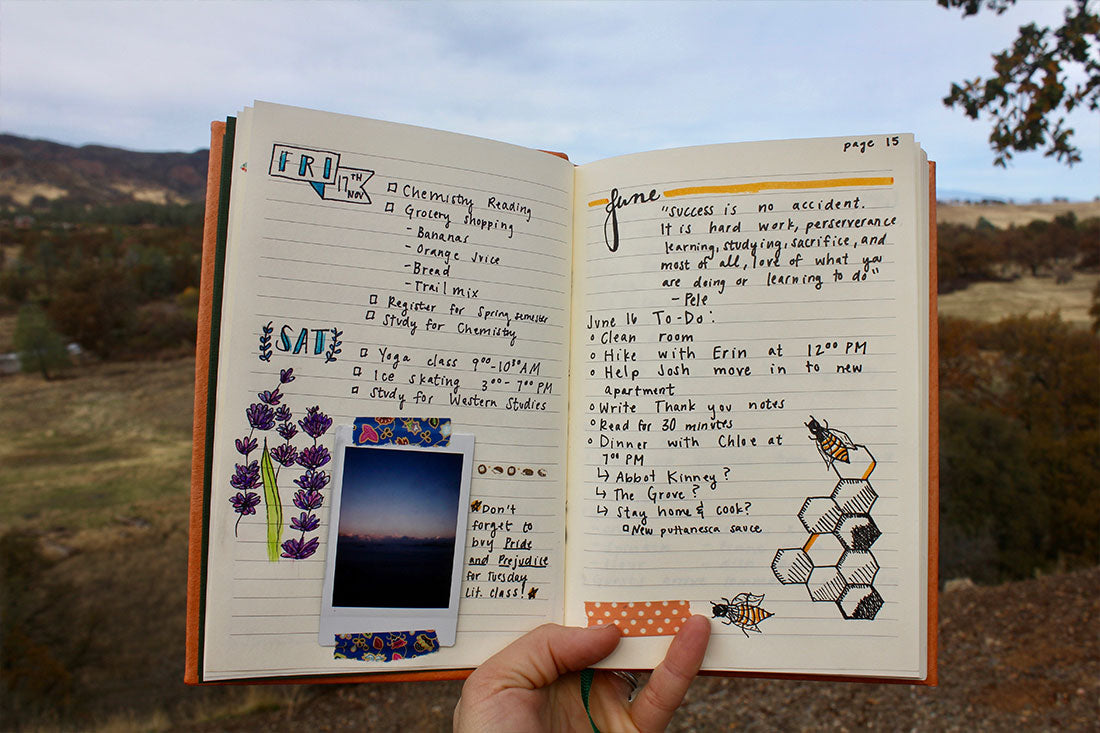 FRI
17TH NOV
□ Chemistry Reading
□ Grocery shopping
- Bananas
- Orange Juice
- Bread
- Trail mix
□ Register for Spring semester
□ Study for Chemistry
SAT
□ Yoga class 9⁰⁰-10³⁰AM
□ Ice skating 3⁰⁰- 7⁰⁰ PM
□ Study for Western Studies
Don't
forget to
buy Pride
and Prejudice
for Tuesday
Lit. class!
page 15
June
"Success is no accident.
It is hard work, perserverance
learning, studying, sacrifice, and
most of all, love of what you
are doing or learning to do"
- Pele
June 16 To-Do:
○ Clean room
○ Hike with Erin at 12⁰⁰ PM
○ Help Josh move in to new
apartment
○ Write Thank you notes
○ Read for 30 minutes
○ Dinner with Chloe at
7⁰⁰ PM
↳ Abbot Kinney?
↳ The Grove?
↳ Stay home & cook?
□ New puttanesca sauce